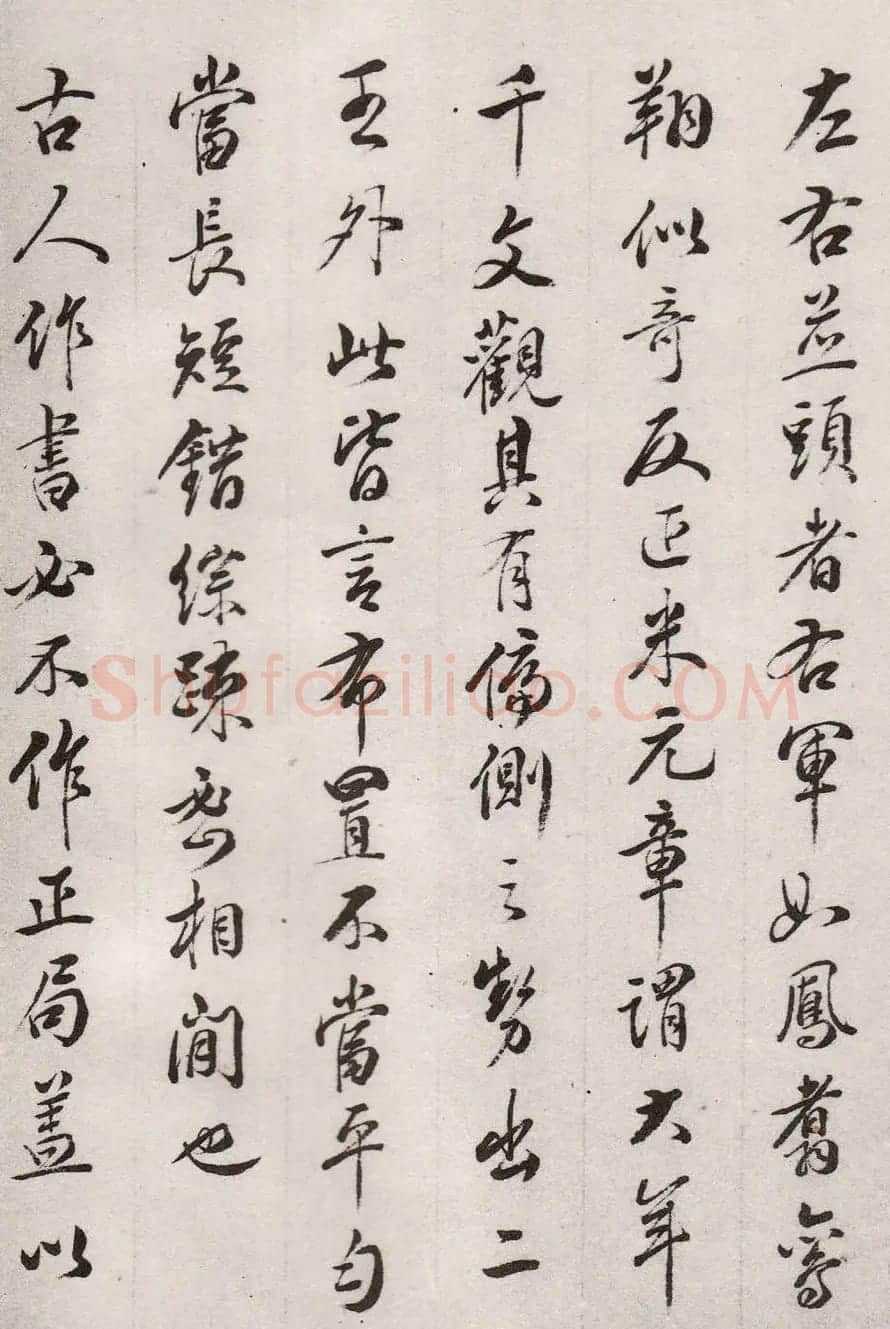 左右並頭者右軍如鳳翥鸞
翔似奇反正米元章謂大年
千文觀其有偏側之勢出二
王外此皆言布置不當平勻
當長短錯綜疎密相間也
古人作書必不作正局蓋以
Shufaziliao.COM